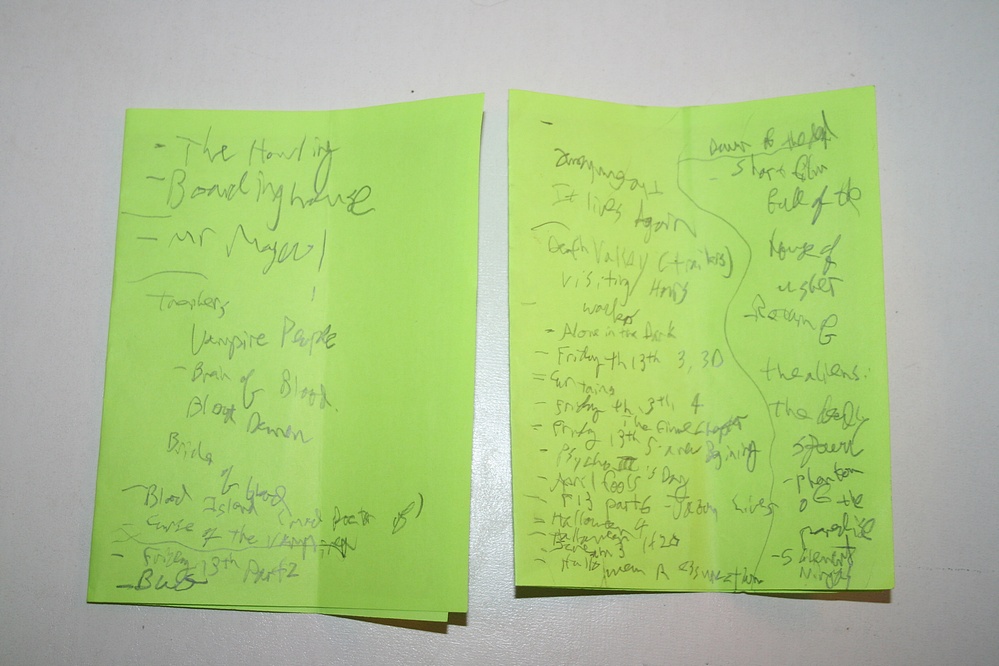 - The Howling
- Boardinghouse
- Mr Majes
Trashers
Vampire People
- Brain of Blood
Blood Demon
Brides
of blood
- Blood Island (mad Doctor of)
- Curse of the Vampires
- Friday 13th Part 2
- Bugs
-
It lives Again
Death Valley (trailers)
visiting Hours
- Alone in the Dark
- Friday th 13th 3, 3D
= Curtains
- Friday th 13th, 4
the Final Chapter
- Friday 13th 5 - a new Begining
- Psycho III
- April Fool's Day
- F 13 part 6 - Jason Lives
= Halloween 4
- Halloween
Scream 3
- Halloween Resurrection
Dawn of the
Short film
Fall of the
house of
usher
- Return of
the aliens:
the deadly
spawn
- phantom
of the
paradise
- 5 element
Ninjas